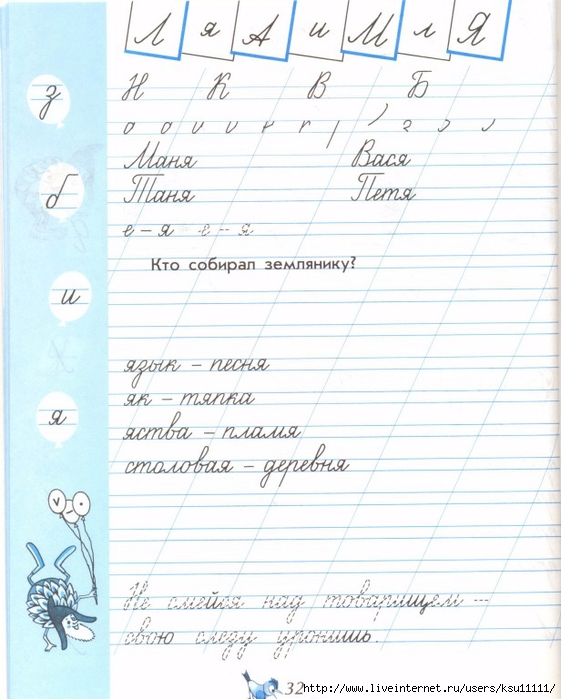 Л я А и М л Я
з Н К В Б
Маня Вася
б Таня Петя
е – я е – я
Кто собирал землянику?
и
язык – песня
як – тяпка
я яства – пламя
столовая – деревня
Не смейся над товарищем –
свою следу уронишь.
32 http://www.liveinternet.ru/users/ksu11111/